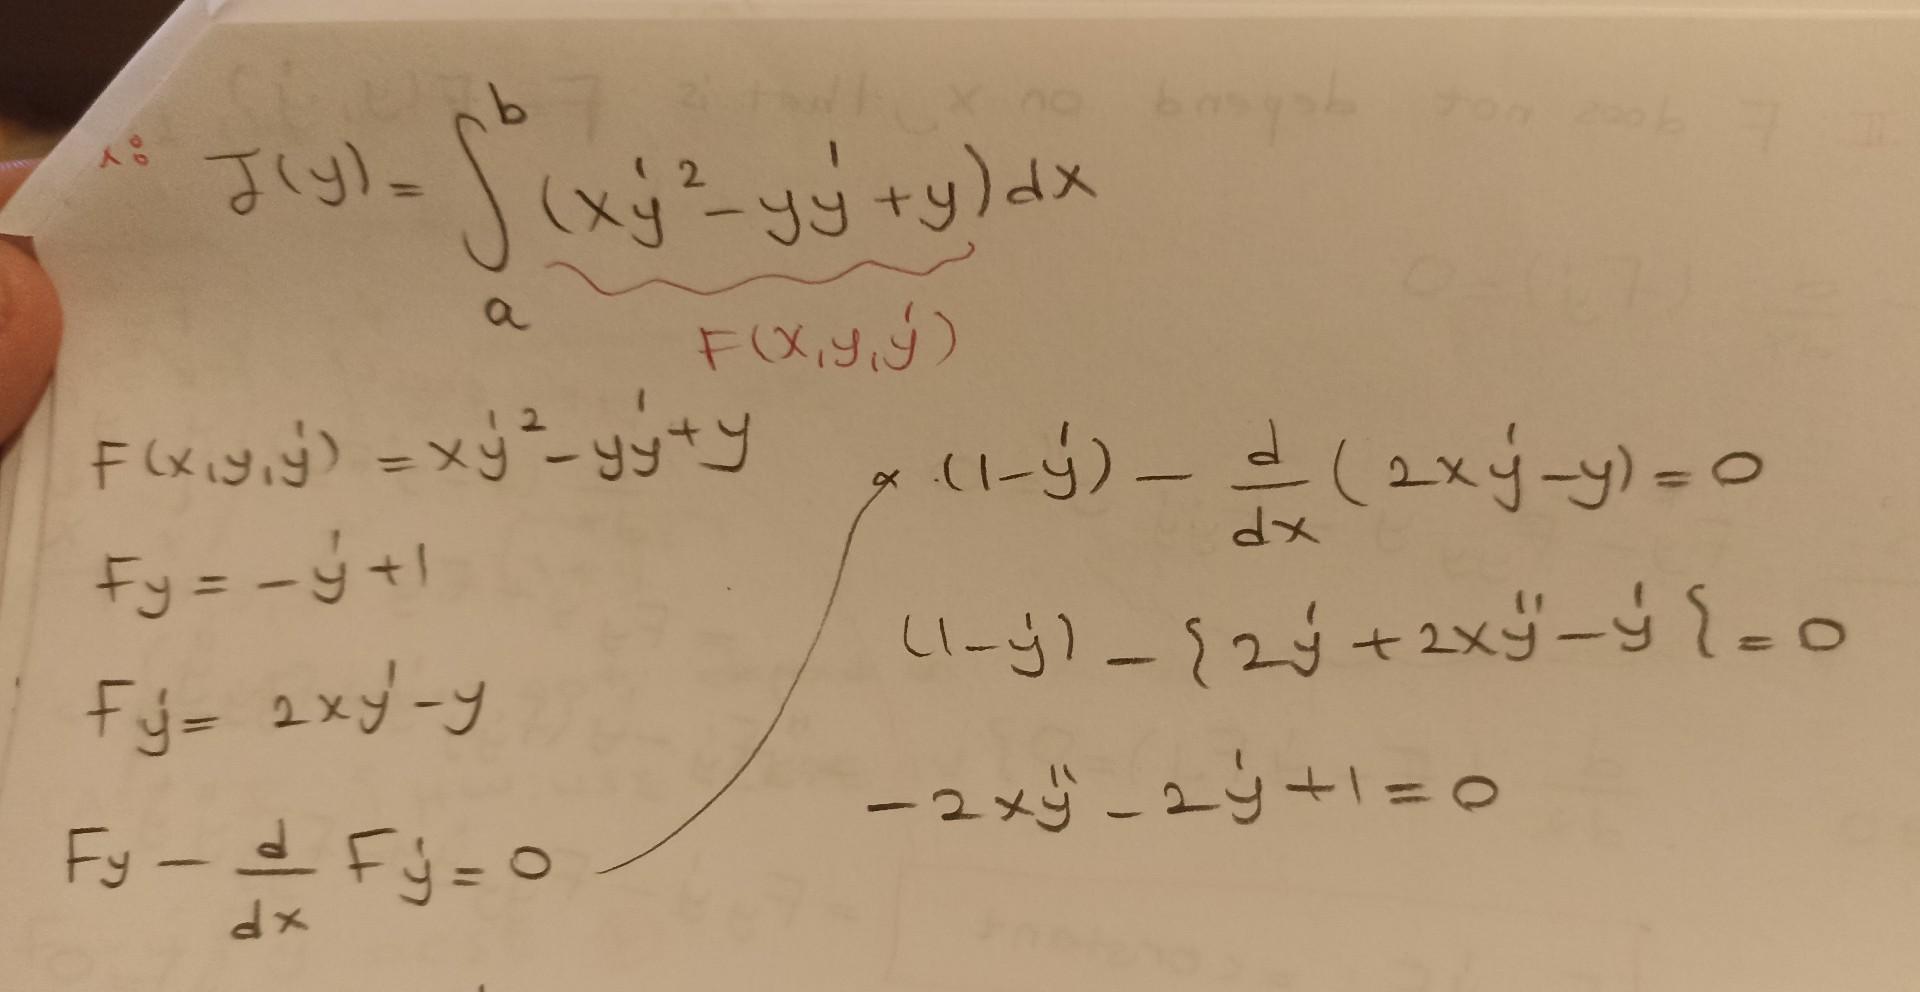 J(y) = ∫_a^b (xy'² - yy' + y) dx
F(x,y,y')
F(x,y,y') = xy'² - yy' + y
Fy = -y' + 1
Fy' = 2xy' - y
Fy - d/dx Fy' = 0
(1-y') - d/dx (2xy' - y) = 0
(1-y') - {2y' + 2xy'' - y'} = 0
-2xy'' - 2y' + 1 = 0